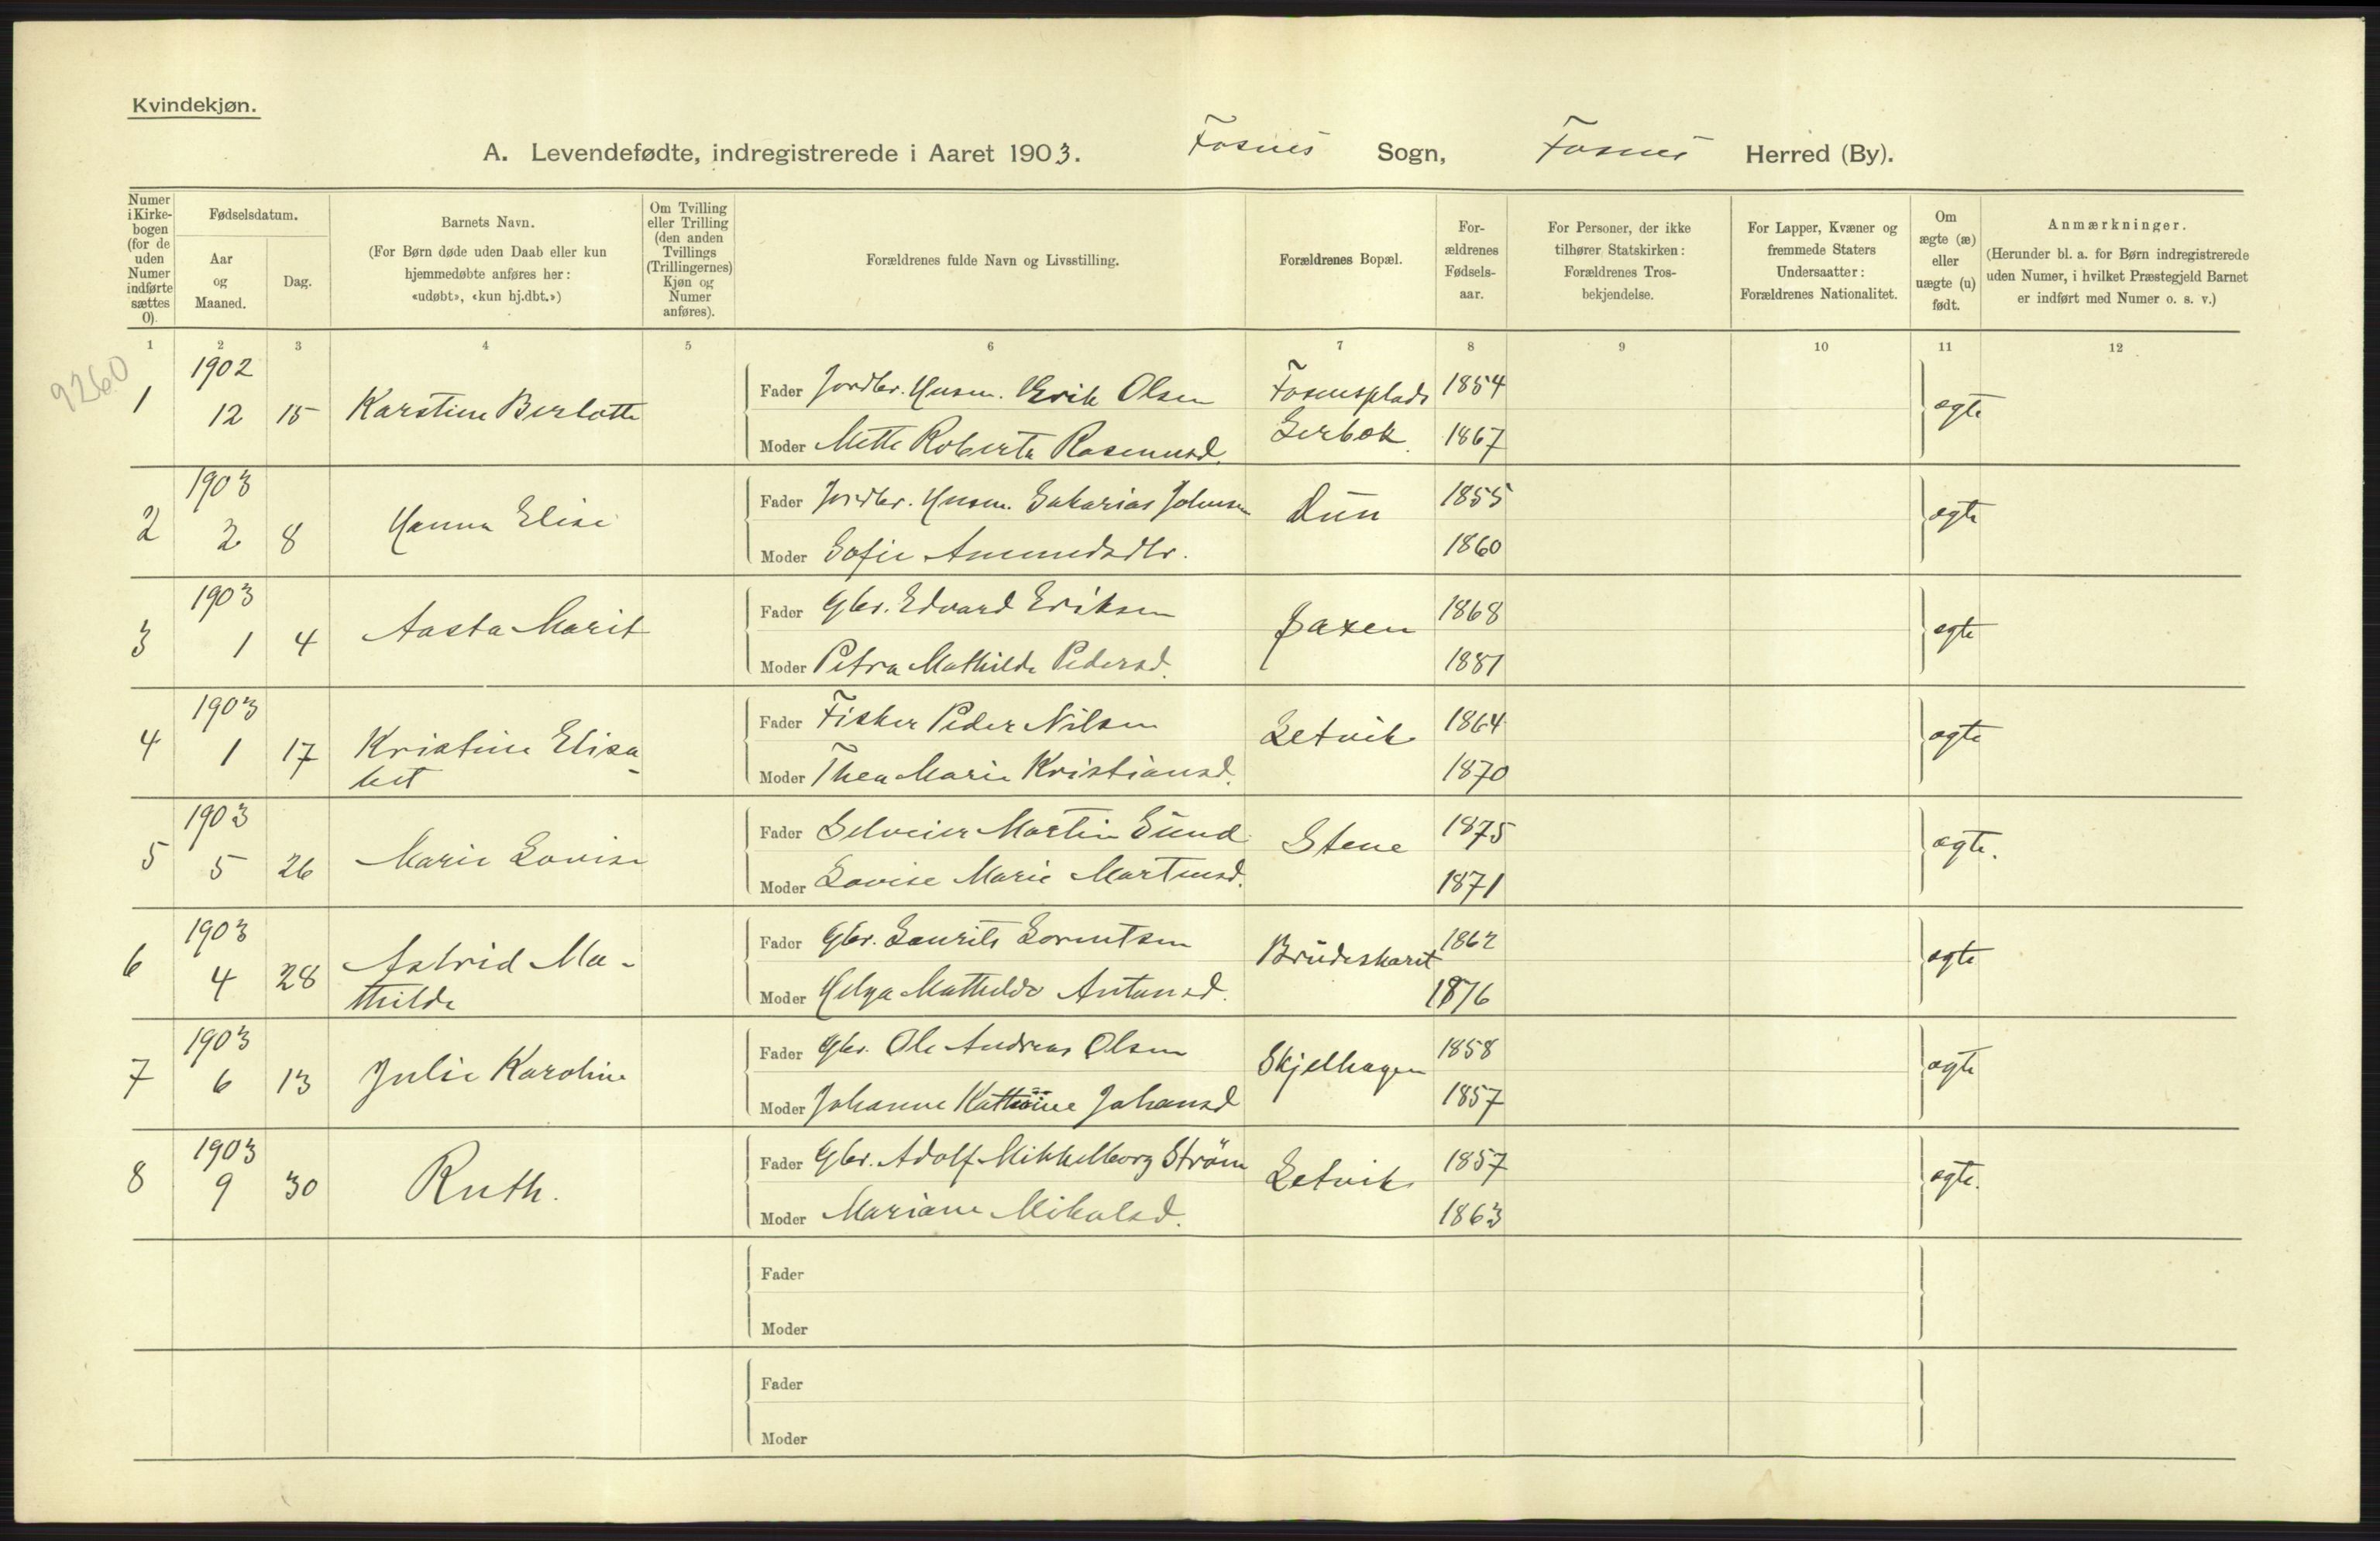 Kvindekjøn.
A. Levendefødte, indregistrerede i Aaret 1903. Fosnes Sogn, Fosnes Herred (By).
Numer i Kirkebogen (for de uden Numer indførte sættes 0).
Fødselsdatum.
Aar og Maaned.
Dag.
Barnets Navn.
(For Børn døde uden Daab eller kun hjemmedøbte anføres her: «udøbt», «kun hj.dbt.»)
Om Tvilling eller Trilling (den anden Tvillings (Trillingernes) Kjøn og Numer anføres).
Forældrenes fulde Navn og Livsstilling.
Forældrenes Bopæl.
Forældrenes Fødselsaar.
For Personer, der ikke tilhører Statskirken: Forældrenes Trosbekjendelse.
For Lapper, Kvæner og fremmede Staters Undersaatter: Forældrenes Nationalitet.
Om ægte (æ) eller uægte (u) født.
Anmærkninger.
(Herunder bl. a. for Børn indregistrerede uden Numer, i hvilket Præstegjeld Barnet er indført med Numer o. s. v.)
1 2 3 4 5 6 7 8 9 10 11 12
9260
1 1902 12 15 Karstine Berlotte
Fader Jordbr. Husm. Erik Olsen Fosnesplads 1854 ægte
Moder Mette Roberta Rasmusd. 1867
2 1903 2 8 Hanna Elise
Fader Jordbr. Husm. Sakarias Johnsen Dun 1855 ægte
Moder Sofie Amundsdtr. 1860
3 1903 1 4 Aasta Marit
Fader Gbr. Edvard Eriksen Faxen 1868 ægte
Moder Petra Mathilde Pedersd. 1881
4 1903 1 17 Kristine Elisa-
bet
Fader Fisker Peder Nilsen Setvik 1864 ægte
Moder Thea Marie Kristiansd. 1870
5 1903 5 26 Marie Lovise
Fader Selveier Martin Sund Stene 1875 ægte.
Moder Lovise Marie Martinsd. 1871
6 1903 4 28 Astrid Ma-
thilde
Fader Gbr. Laurits Lorentsen Brudeskaret 1862 ægte
Moder Helga Mathilde Antonsd. 1876
7 1903 6 13 Julie Karoline
Fader Gbr. Ole Andreas Olsen Skjelhagen 1858 ægte
Moder Johanne Johansd 1857
8 1903 9 30 Ruth.
Fader Gbr. Adolf Mikkelborg Ström Setvik 1857 ægte.
Moder Mariane Mikalsd. 1863
Fader
Moder
Fader
Moder